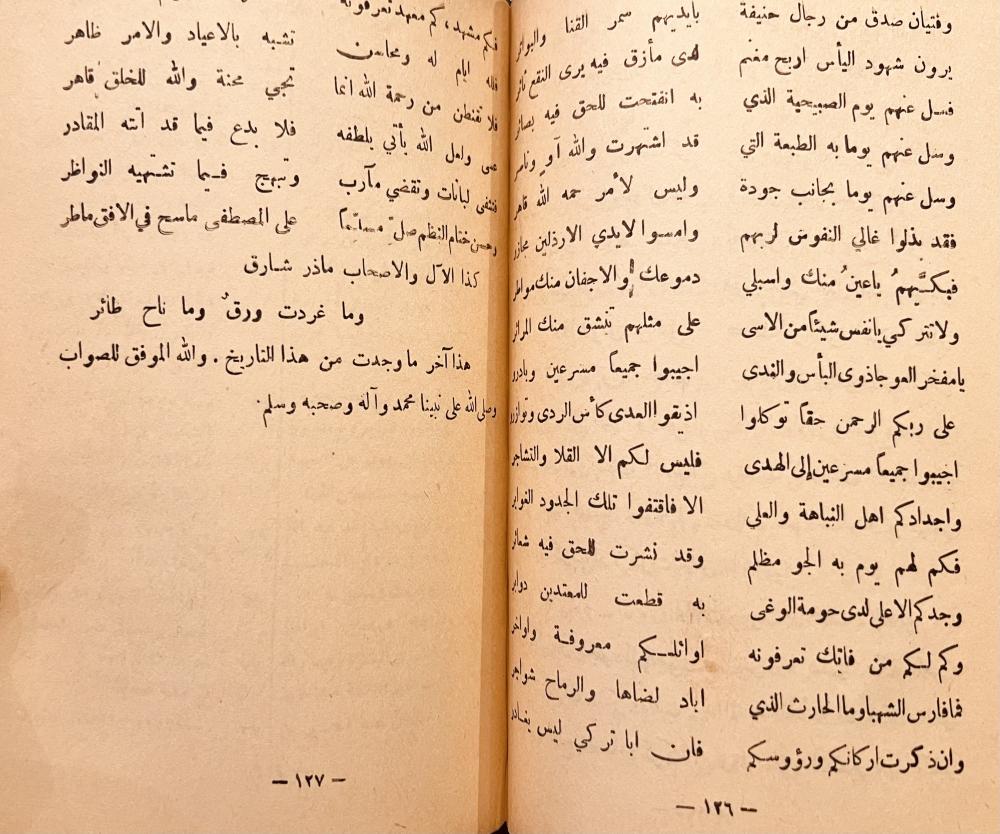 وفتيان صدق من رجال حنيفة بايديهم سمر القنا والبواتر
يرون شهود البأس اربح مغنم لدى مأزق فيه يرى النقع ثائر
فسل عنهم يوم الصبيحية الذي به انفتحت للحق فيه بصائر
وسل عنهم يوما به الطبعة التي قد اشتهرت والله آو وناصر
وسل عنهم يوما بجانب جودة وليس لأمر حمه الله قاهر
فقد بذلوا غالي النفوس لربهم وامسوا لايدي الارذلين مجازر
فبكيهم ياعين منك واسبلي دموعك والاجفان منك مواطر
ولاتتركي يانفس شيئاً من الاسى على مثلهم تنشق منك المرائر
يامفخر العوجا ذوى البأس والندى اجيبوا جميعاً مسرعين وبادروا
على ربكم الرحمن حقاً توكلوا اذيقوا العدى كأس الردى وتوازروا
اجيبوا جميعاً مسرعين إلى الهدى فليس لكم الا القلا والتشاجر
واجدادكم اهل النباهة والعلي الا فاقتفوا تلك الجدود الغوابر
فكم لهم يوم به الجو مظلم وقد نشرت للحق فيه شعائر
وجدكم الاعلى لدى حومة الوغى به قطعت للمعتدين دوابر
وكم لكم من فاتك تعرفونه اوائلكم معروفة واواخر
فما فارس الشهبا وما الحارث الذي اباد لضاها والرماح شواجر
وان ذكرت اركانكم ورؤوسكم فان ابا تركي ليس يغادر
— ١٢٦ —
فكم مشهد، كم معهد تعرفونه تشبه بالاعياد والامر ظاهر
فلله ايام له ومحاسن تجي محنة والله للخلق قاهر
فلا تقنطن من رحمة الله انما فلا بدع فيما قد اتته المقادر
عسى ولعل الله يأتي بلطفه وتبهج فيما تشتهيه النواظر
فتشفى لبانات وتقضي مآرب على المصطفى ماسح في الافق ماطر
وحسن ختام النظم صل مسلماً
كذا الآل والاصحاب ماذر شارق
وما غردت ورق وما ناح طائر
هذا آخر ما وجدت من هذا التاريخ . والله الموفق للصواب
وصلى الله على نبينا محمد وآله وصحبه وسلم .
— ١٢٧ —